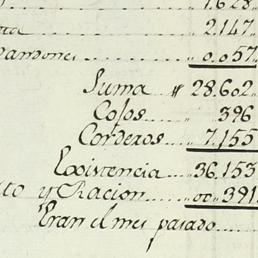 1.628
2.147
0.057
Suma 28.602
Cojos 396
Corderos 7.155
Existencia 36.153
to y Racion 00 391
Eran el mes pasado